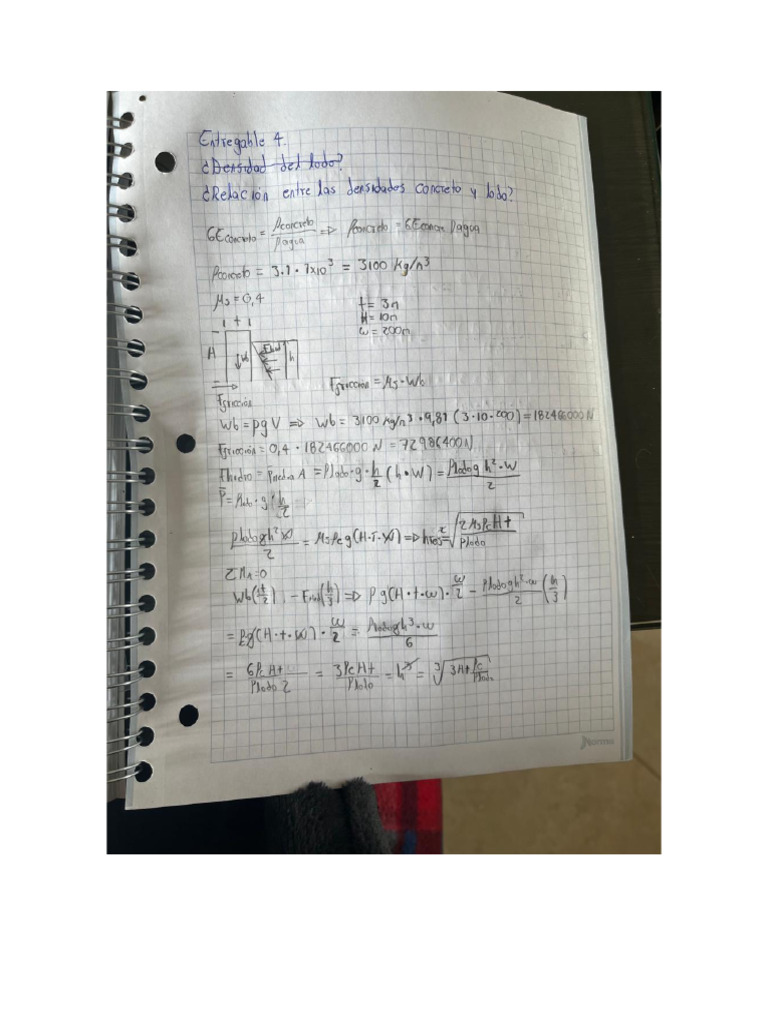 Entregable 4.
¿Densidad del lodo?
¿Relación entre las densidades concreto y lodo?
GEconcreto = ρconcreto/ρagua => ρconcreto = GEconcre ρagua
ρconcreto = 3.1 · 1x10³ = 3100 Kg/m³
μs = 0,4
t = 3m
H = 10m
w = 200m
t
A
Wb
Fhid
h
Ffriccion
Ffriccion = μs · Wb
Wb = ρgV => Wb = 3100 Kg/m³ · 9,81 (3·10·200) = 182466000 N
Ffriccion = 0,4 · 182466000 N = 72986400 N
Fhidro = Pmedia A = ρlodo · g · h/2 (h·w) = ρlodo g h² · w/2
P̄ = ρlodo · g · h/2
ρlodo g h² w/2 = μs ρc g (H·t·w) => hres = √(2 μs ρc H t/ρlodo)
ΣMA = 0
Wb(t/2) - Fhid(h/3) => ρg(H·t·w) · w/2 - ρlodo g h² · w/2 (h/3)
= ρcg(H·t·w) · w/2 = ρlodo g h³ · w/6
= 6ρc H t/ρlodo 2 = 3ρc H t/ρlodo = h³ = ∛(3H t ρc/ρlodo)
norma